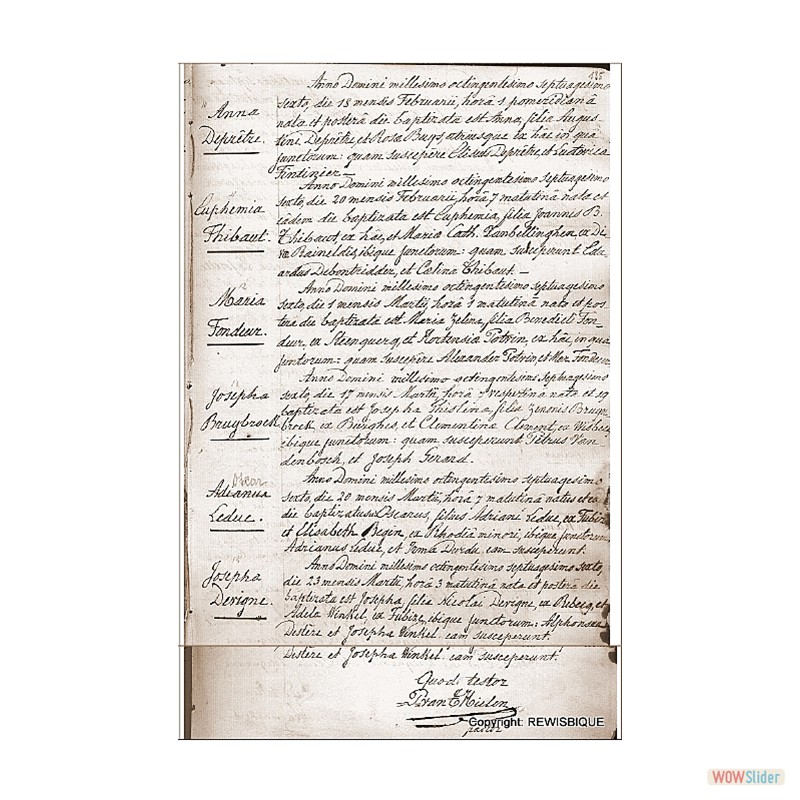 128
Anno Domini millesimo octingentesimo septuagesimo
Anna Deprêtre.
sexto, die 18 mensis Februarii, horâ 1 pomeridianâ
nata et posterâ die baptizata est Anna, filia Augus-
tini Deprêtre, et Rosa Buys, utriusque ex hâc, in quâ
junctorum: quam suscepêre Eliseus Deprêtre, et Ludovica
Fintinier. –
Anno Domini millesimo octingentesimo septuagesimo
Euphemia Thibaut.
sexto, die 20 mensis Februarii, horâ 7 matutinâ nata et
eâdem die baptizata est Euphemia, filia Joannis B.
Thibaut, ex hâc, et Maria Cath. Vanbellinghen, ex Di-
va Raineldis, ibique junctorum: quam susceperunt Edu-
ardus Debontridder, et Celina Thibaut. –
Anno Domini millesimo octingentesimo septuagesimo
Maria Fondeur.
sexto, die 1 mensis Martii, horâ 1 matutinâ nata et pos-
terâ die baptizata est Maria Zelina, filia Benedicti Fon-
deur, ex Steenquerq, et Hortensia Potvin, ex hâc, in quâ
junctorum: quam suscepêre Alexander Potvin, et Fondeur
Anno Domini millesimo octingentesimo septuagesimo
Josepha Bruybrock
sexto, die 17 mensis Martii, horâ 7 vespertinâ nata et
baptizata est Josepha Ghislina, filia Zenonis Bruy-
brock, ex Burghes, et Clementina Clement, ex
ibique junctorum: quam susceperunt Petrus Van-
denbosch, et Joseph Gerard.
Anno Domini millesimo octingentesimo septuagesimo
Oscar
Adrianus Leduc.
sexto, die 20 mensis Martii, horâ 7 matutinâ natus et eâ
die baptizatus Oscarus, filius Adriani Leduc, ex Tubize
et Elisabeth Begin, ex Rhodiâ minori, ibique junctorum
Adrianus Leduc, et Irma Derode, eam susceperunt.
Anno Domini millesimo octingentesimo septuagesimo sexto,
Josepha Devigne.
die 23 mensis Martii, horâ 3 matutinâ nata et posterâ die
baptizata est Josepha, filia Nicolai Devigne, ex Rebecq, et
Adela Winkel, ex Tubize, ibique junctorum: Alphonsus
Destère et Josepha Winkel eam susceperunt.
Destère et Josepha Winkel eam susceperunt.
Quod testor
pastor
Copyright: REWISBIQUE
WOWSlider